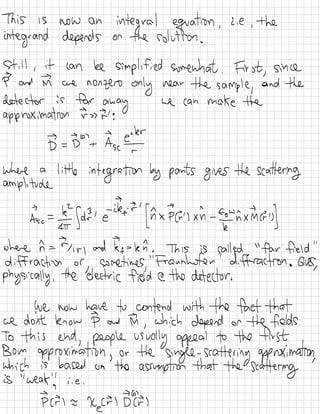 This is now an integral equation, i.e., the
integrand depends on the solution.
Still, it can be simplified somewhat. First, since
P⃗ and M⃗ are nonzero only near the sample, and the
detector is far away we can make the
approximation r⃗ >> r⃗':
D⃗ = D⃗⁽⁰⁾ + A⃗sc e^{ikr}/r
where a little integration by parts gives the scattering
amplitude
A⃗sc = k²/4π ∫d³r' e^{-ik⃗f·r⃗'} [n̂ × P⃗(r⃗') × n̂ − ε₀ω/k n̂ × M⃗(r⃗')]
where n̂ = r⃗/|r| and k⃗f = kn̂. This is called "far field"
diffraction or sometimes "Fraunhofer" diffraction.
physically, the electric field @ the detector.
We now have to contend with the fact that
we dont know P⃗ and M⃗, which depend on the fields
To this end, people usually appeal to the first
Born approximation, or the single-scattering approximation,
which is based on the assumption that the scattering
is "weak", i.e.
P⃗(r⃗) ≈ χe(r⃗) D⃗⁽⁰⁾(r⃗)